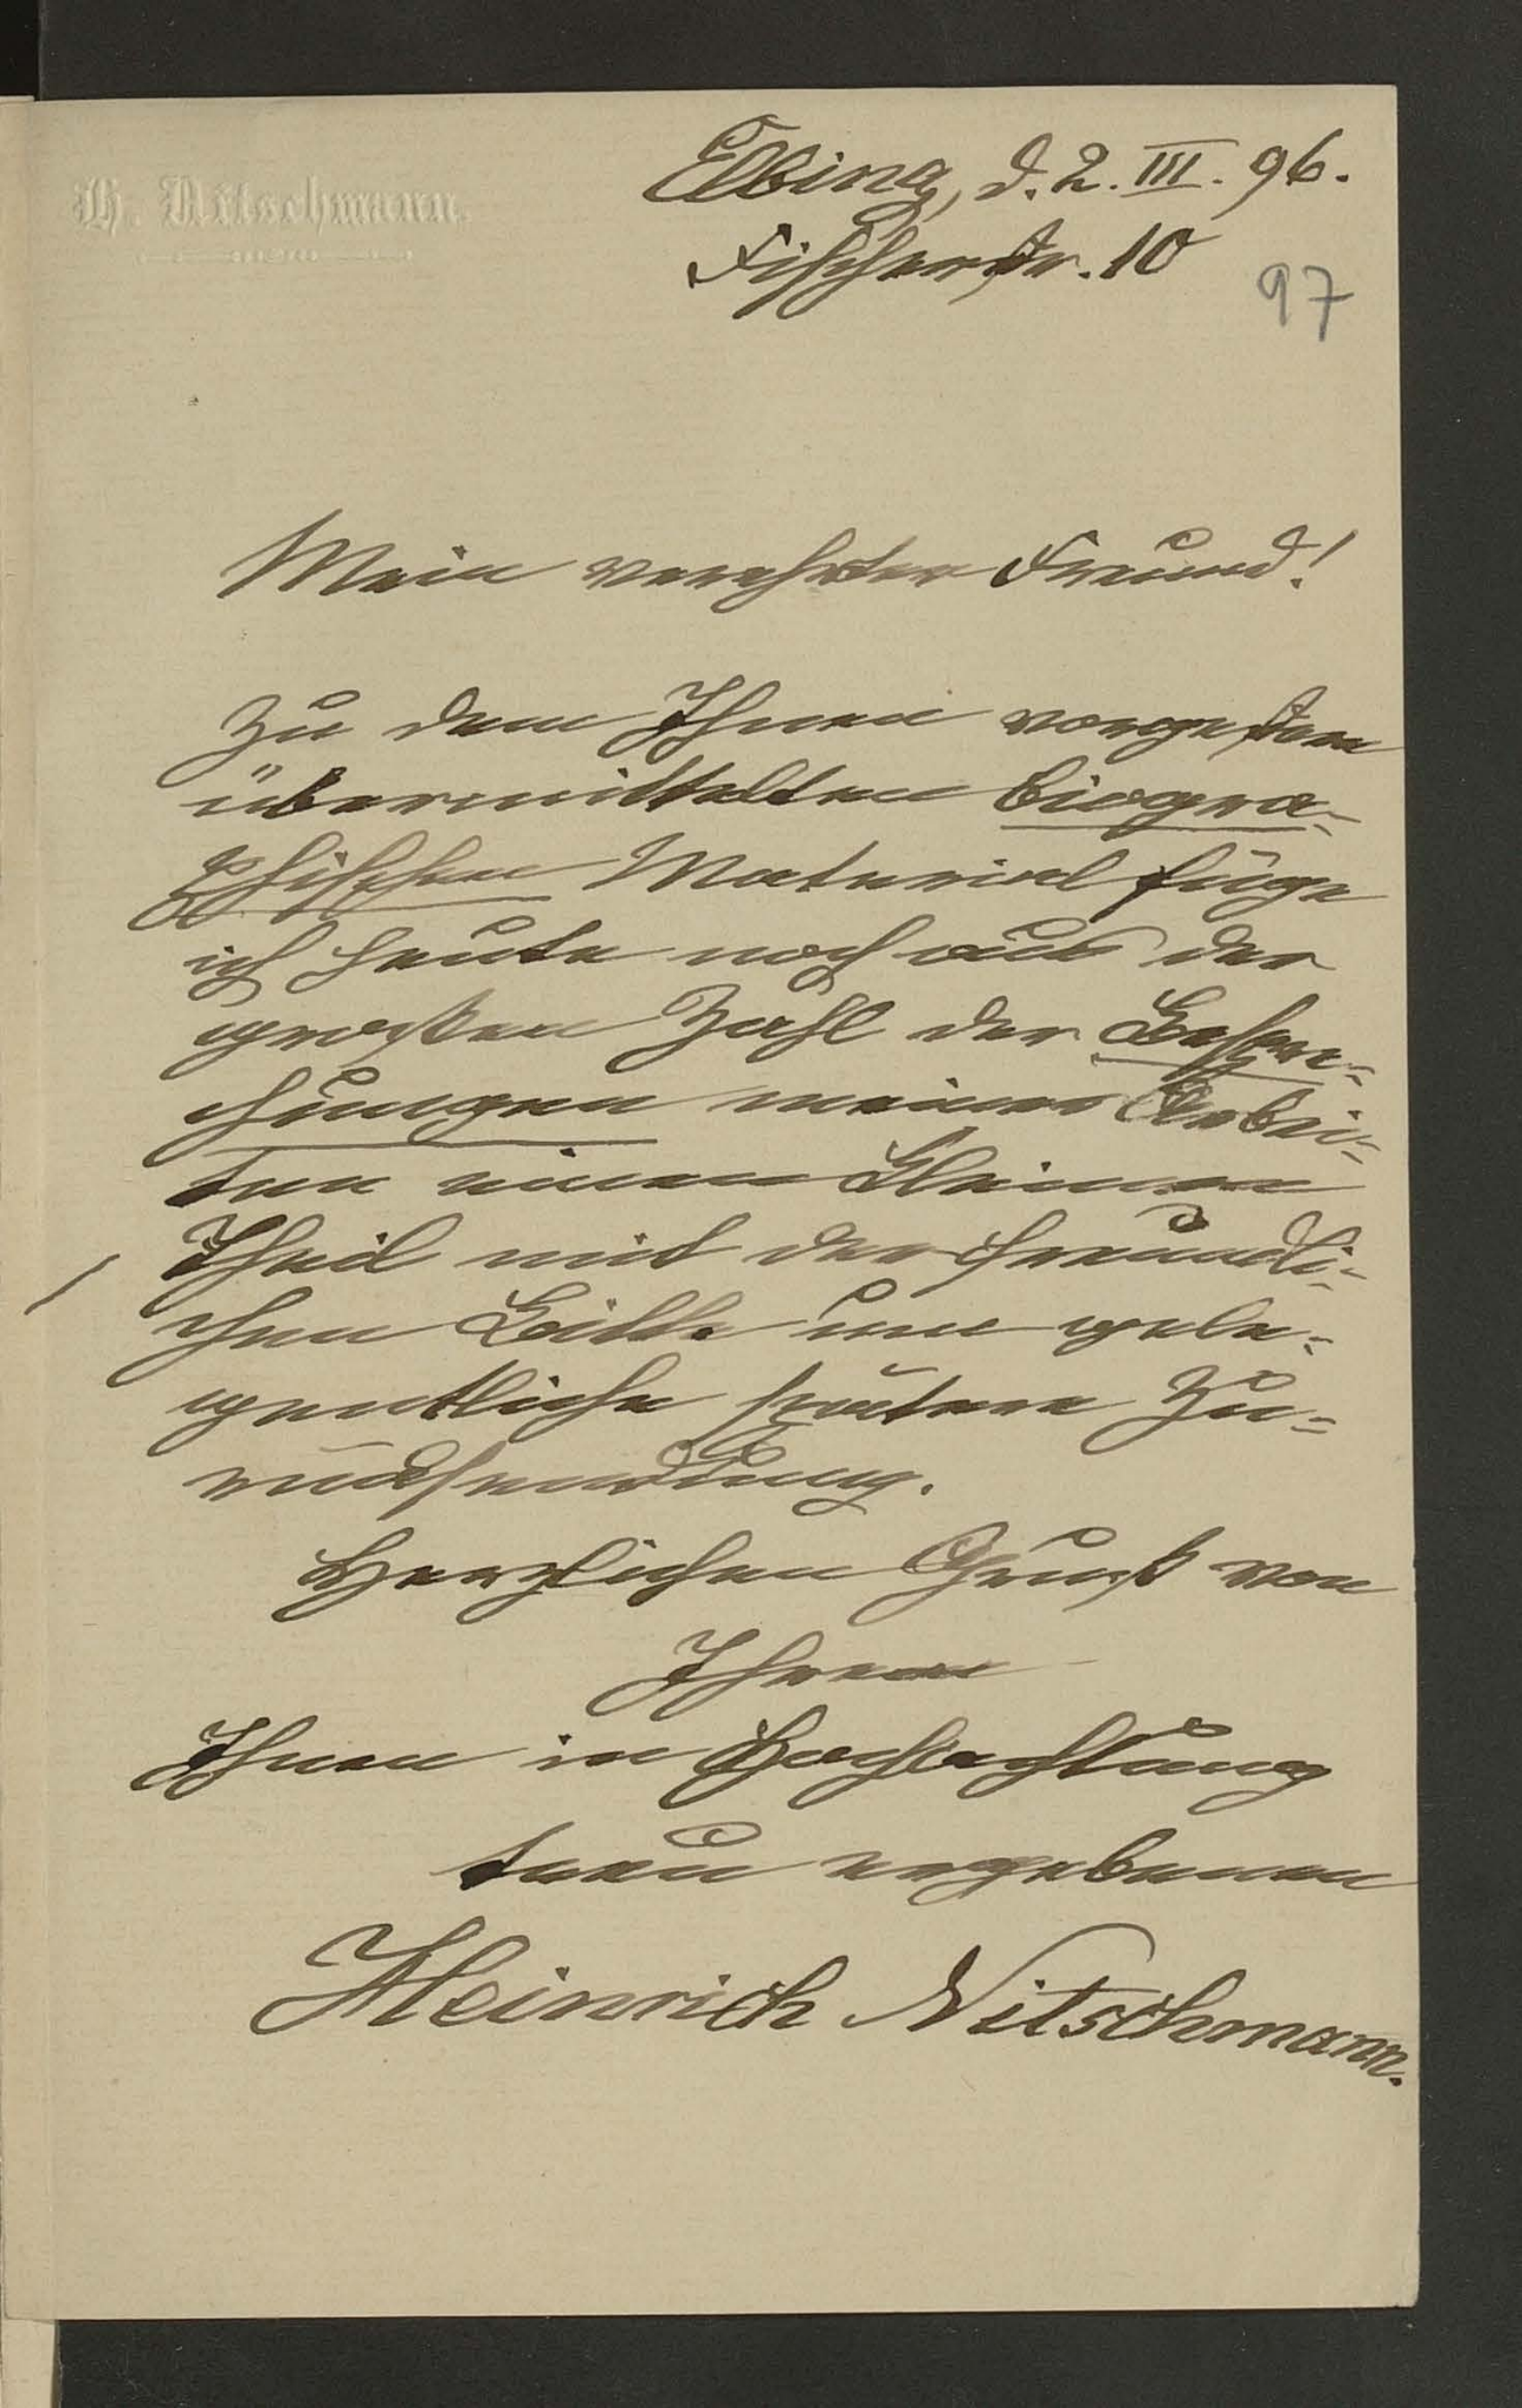 H. Nitschmann.
Elbing, d. 2. III. 96.
Fischerstr. 10
97
Mein verehrter Freund!
Zu dem Ihnen vorgestern
übermittelten biogra-
phischen Material füge
ich heute noch aus der
großen Zahl der Bespre-
chungen meiner Arbei-
ten einen kleinen
Theil mit der freundli-
chen Bitte um gele-
gentliche spätere Zu-
rücksendung.
Herzlichen Gruß von
Ihrem
Ihnen in Hochachtung
treu ergebenen
Heinrich Nitschmann.